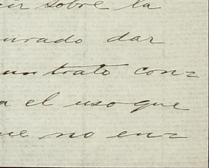 cir sobre la
curado dar
un trato con=
a el uso que
ue no en=